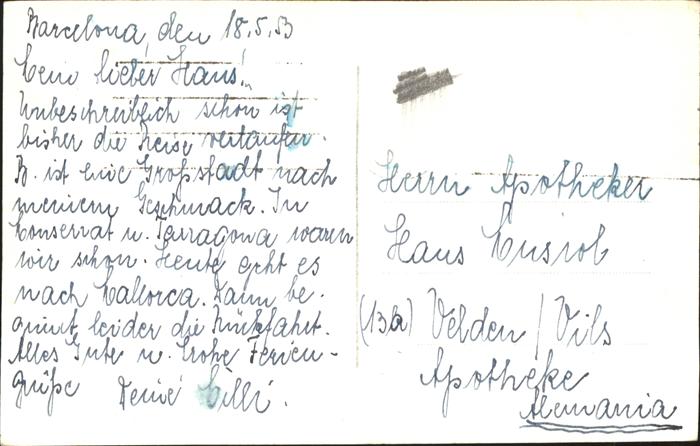 Barcelona, den 18.5.53
Mein lieber Hans!
Unbeschreiblich schön ist
bisher die Reise verlaufen.
B. ist eine Großstadt nach
meinem Geschmack. In
Monserrat u. Tarragona waren
wir schon. Heute geht es
nach Mallorca. Dann be-
ginnt leider die Rückfahrt.
Alles Gute u. frohe Ferien-
grüße Deine Cilli.
Herrn Apotheker
Hans
(13b) Velden / Vils
Apotheke
Alemania